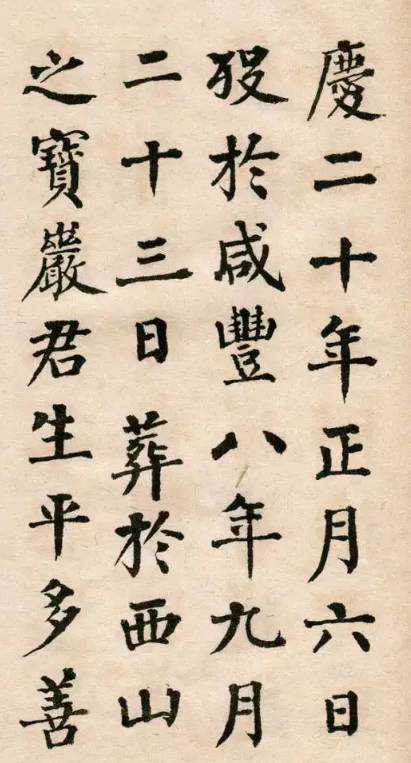 慶二十年正月六日
歿於咸豐八年九月
二十三日葬於西山
之寶巖君生平多善